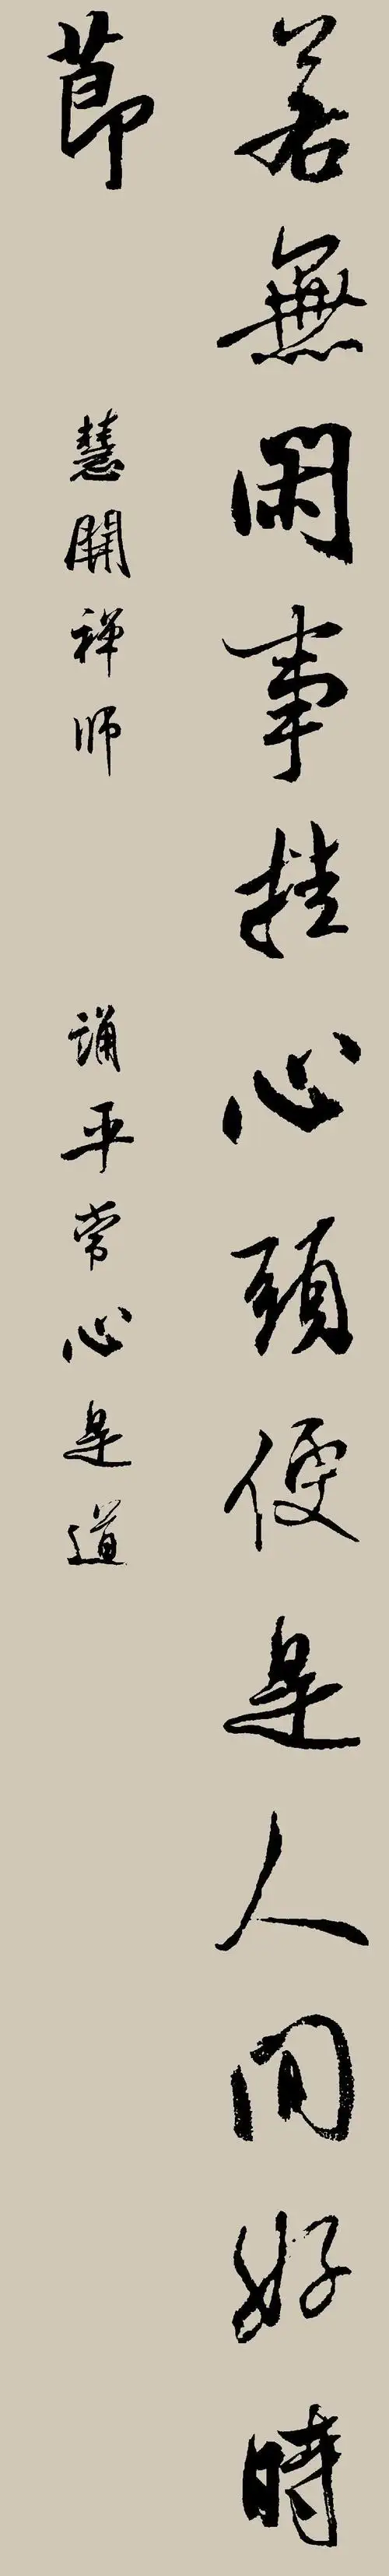 若無閑事挂心頭便是人间好時
節
慧開禅师
诵平常心是道